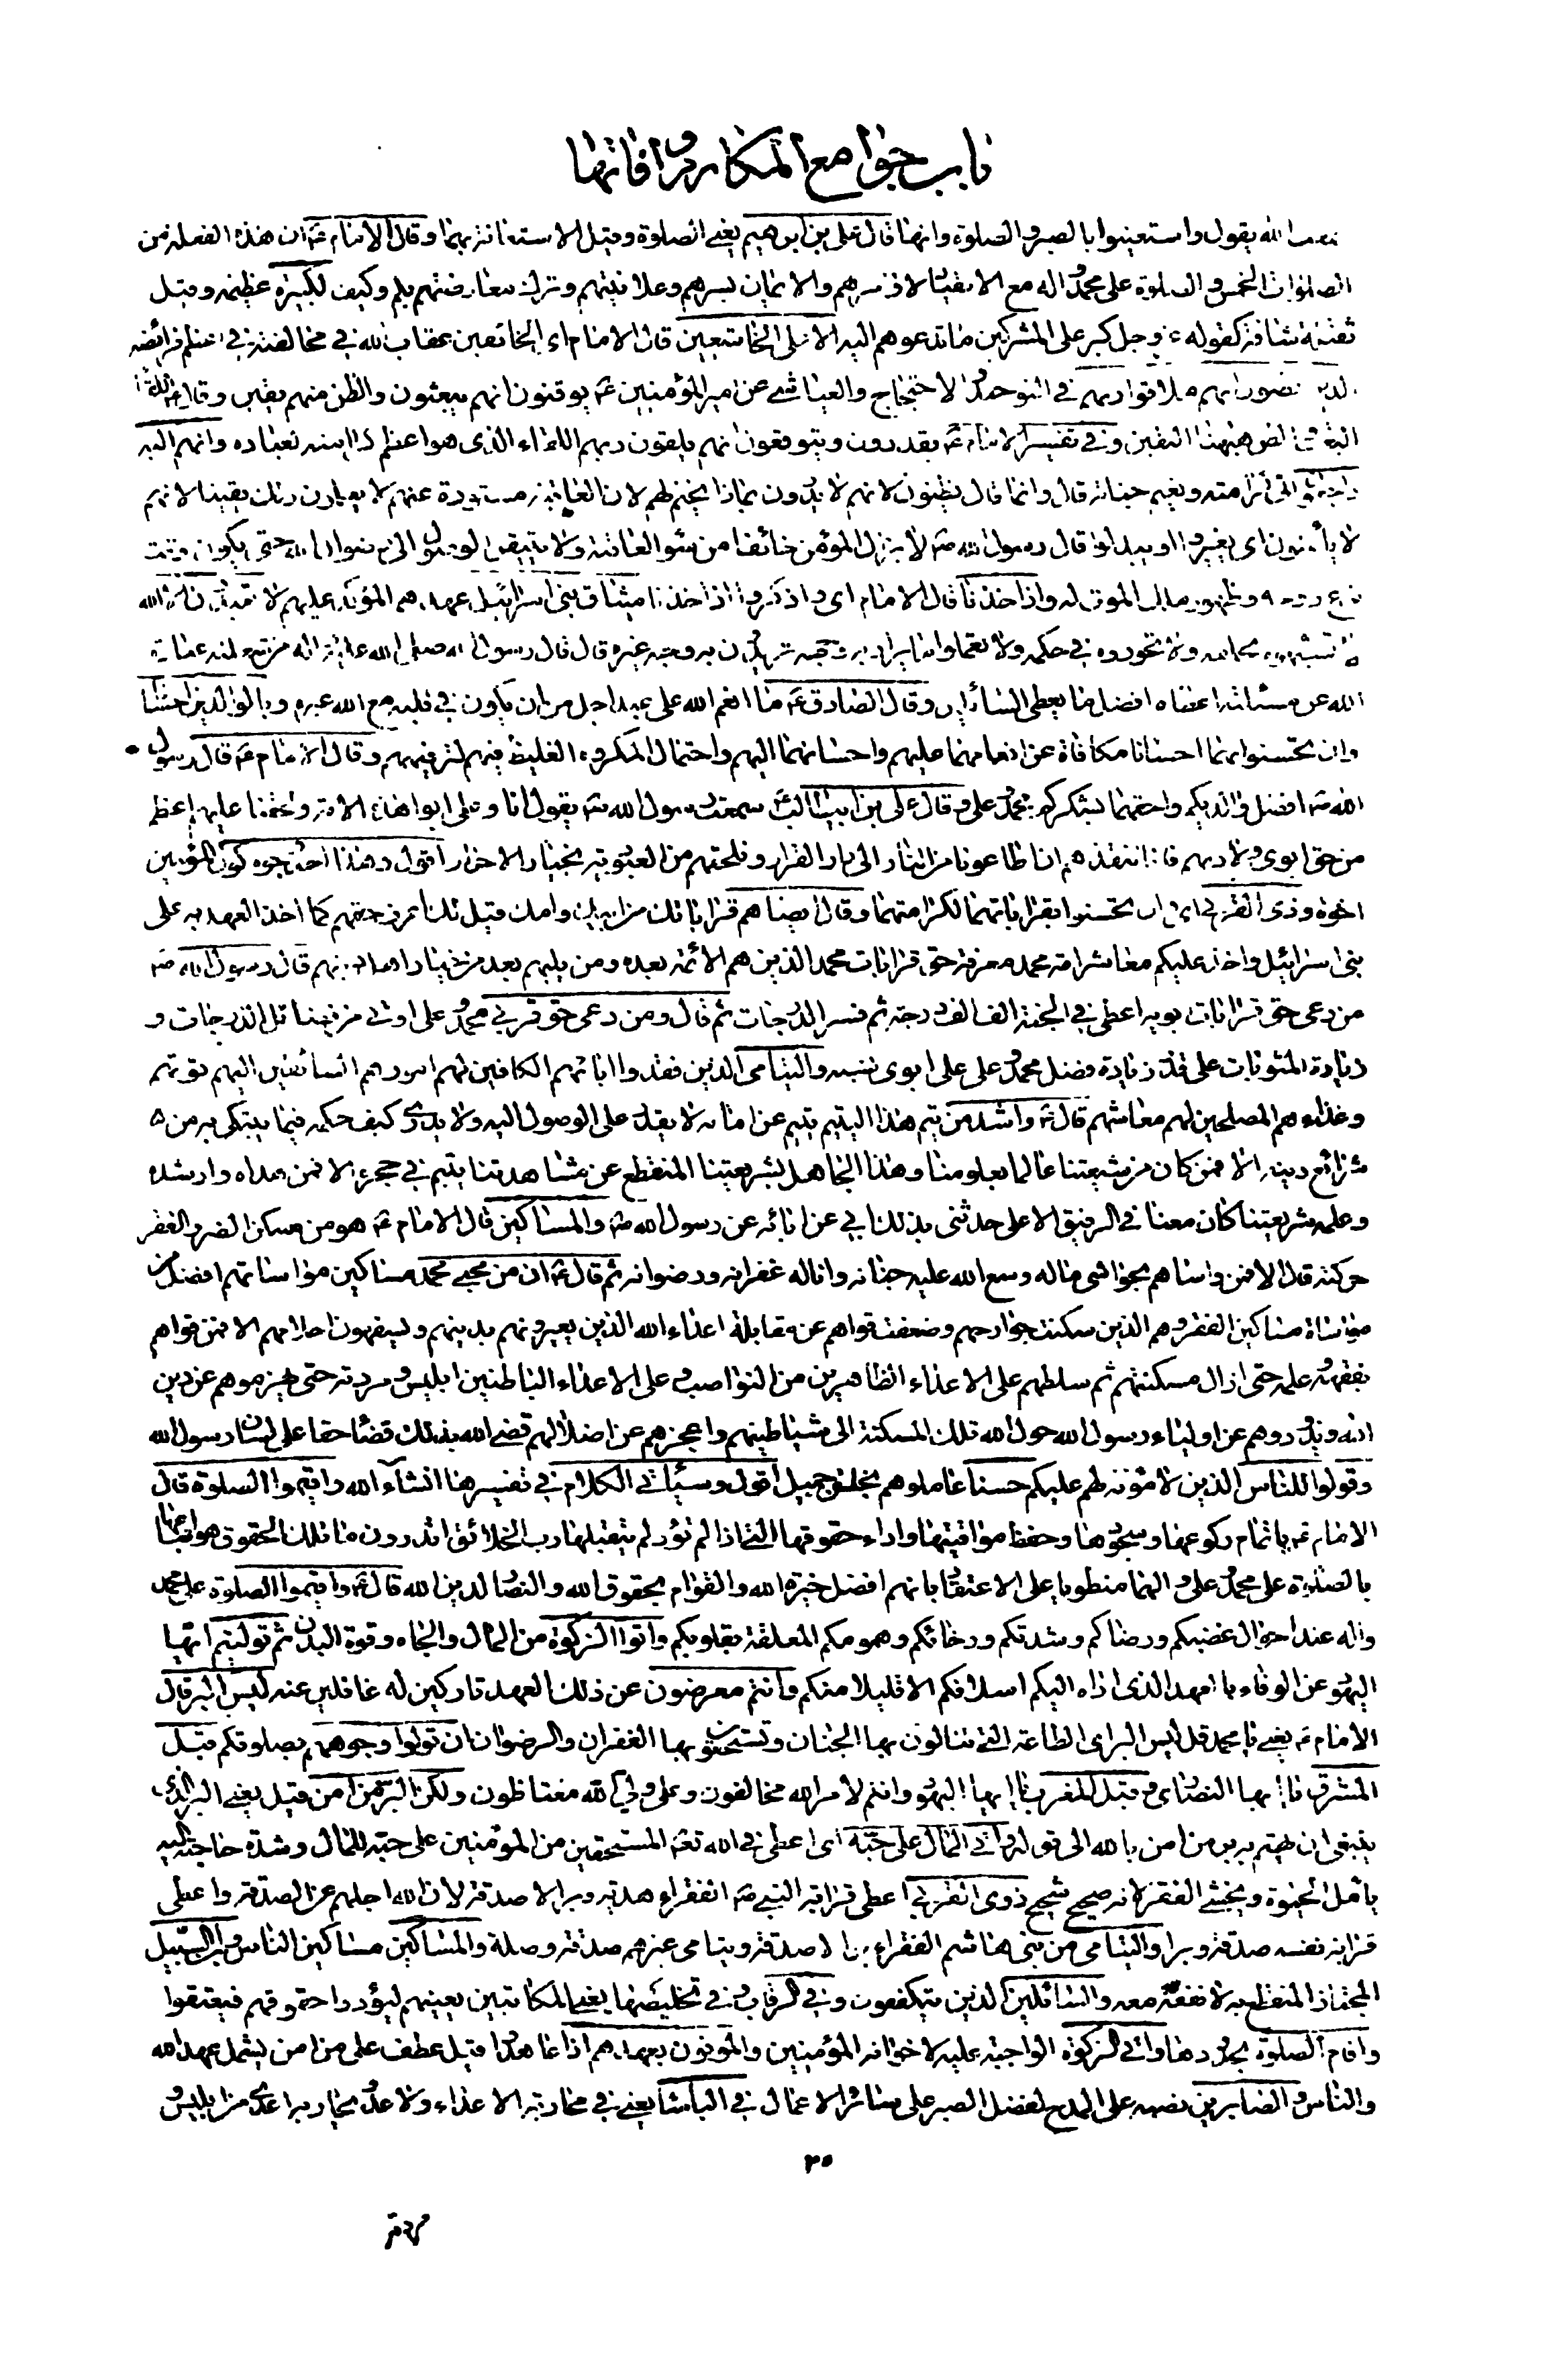 باب جوامع المكارم و افاتها
الله يقول واستعينوا بالصبر والصلوة وانها قال علي بن ابرهيم يعني الصلوة وقيل الاستعانة بهما وقال الامام ع ان هذه الفعلة من
الصلوات الخمس والصلوة على محمد واله مع الانقياد لاوامرهم والايمان بسرهم وعلانيتهم وترك معارضتهم بلم وكيف لكبيرة عظيمة وقيل
ثقيلة شاقة كقوله عز وجل كبر على المشركين ما تدعوهم اليه الا على الخاشعين قال الامام اي الخائفين عقاب الله في مخالفته في اعظم فرائضه
انهم ملاقوا ربهم في التوحيد والاحتجاج والعياشي عن امير المؤمنين ع يوقنون انهم يبعثون والظن منهم يقين وقال ع اللقاء
البعث والظن هيهنا اليقين وفي تفسير الامام ع يقدرون ويتوقعون انهم يلقون ربهم اللقاء الذي هو اعظم كرامته لعباده وانهم اليه
راجعون الى كرامته ونعيم جناته قال وانما قال يظنون لانهم لا يدرون بماذا يختم لهم لان العاقبة مستورة عنهم لا يعلمون ذلك يقينا لانهم
لا يأمنون ان يغيروا او يبدلوا قال رسول الله ص لا يزال المؤمن خائفا من سوء العاقبة ولا يتيقن الوصول الى رضوان الله حتى يكون وقت
نزع روحه وظهور ملك الموت له واذ اخذنا قال الامام اي واذكروا اذ اخذنا ميثاق بني اسرائيل عهدهم المؤكد عليهم لا تعبدون الا الله
بخلقه ولا تجوروه في حكمه ولا تعملوا ما يراد به وجهه تريدون به وجه غيره قال قال رسول الله صلى الله عليه واله من شغلته عبادة
الله عن مسئلته اعطاه افضل ما يعطي السائلين وقال الصادق ع ما انعم الله على عبد اجل من ان يكون في قلبه مع الله غيره وبالوالدين احسانا
وان تحسنوا بهما احسانا مكافاة عن انعامهما عليهم واحسانهما اليهم واحتمال المكروه الغليظ فيهم لترفيههم وقال الامام ع قال رسول
الله ص افضل والديكم واحقهما لشكركم محمد وعلي وقال علي بن ابيطالب ع سمعت رسول الله ص يقول انا وعلي ابوا هذه الامة ولحقنا عليهم اعظم
من حق ابوي ولادتهم فانا ننقذهم ان اطاعونا من النار الى دار القرار ونلحقهم من العبودية بخيار الاحرار اقول وهذا احد وجوه كون المؤمنين
اخوة وذي القربى اي وان تحسنوا بقراباتهما لكرامتهما وقال ايضا هم قراباتك من ابيك وامك وقيل لك اعرف حقهم كما اخذ العهد به على
بني اسرائيل واخذ عليكم معاشر امة محمد معرفة حق قرابات محمد الذين هم الائمة بعده ومن يليهم بعد من خيار اهل دينهم قال رسول الله ص
من رعى حق قرابات ابويه اعطي في الجنة الف الف درجة ثم فسر الدرجات ثم قال ومن رعى حق قربى محمد وعلي اوتي من فضائل الدرجات و
زيادة المثوبات على قدر زيادة فضل محمد وعلي على ابوي نسبه واليتامى الذين فقدوا اباءهم الكافين لهم امورهم السائقين اليهم قوتهم
وغذاءهم المصلحين لهم معاشهم قال ع واشد من يتم هذا اليتيم يتيم عن امامه لا يقدر على الوصول اليه ولا يدري كيف حكمه فيما يبتلى به من
شرائع دينه الا فمن كان من شيعتنا عالما بعلومنا وهذا الجاهل بشريعتنا المنقطع عن مشاهدتنا يتيم في حجره الا فمن هداه وارشده
وعلمه شريعتنا كان معنا في الرفيق الاعلى حدثني بذلك ابي عن ابائه عن رسول الله ص والمساكين قال الامام ع هو من سكن الضر والفقر
حركته قال الا فمن واساهم بحواشي ماله وسع الله عليه جنانه واناله غفرانه ورضوانه ثم قال ع ان من محبي محمد مساكين مواساتهم افضل من
مواساة مساكين الفقر وهم الذين سكنت جوارحهم وضعفت قواهم عن مقابلة اعداء الله الذين يعيرونهم بدينهم ويسفهون احلامهم الا فمن قواهم
بفقهه وعلمه حتى ازال مسكنتهم ثم سلطهم على الاعداء الظاهرين من النواصب وعلى الاعداء الباطنين ابليس ومردته حتى يهزموهم عن دين
الله ويذودوهم عن اولياء رسول الله حول الله تلك المسكنة الى شياطينهم واعجزهم عن اضلالهم قضى الله بذلك قضاء حقا على لسان رسول الله
وقولوا للناس الذين لا مؤنة لهم عليكم حسنا عاملوهم بخلق جميل اقول وسيأتي الكلام في تفسيرها انشاء الله واقيموا الصلوة قال
الامام ع باتمام ركوعها وسجودها وحفظ مواقيتها واداء حقوقها التي اذا لم تؤد لم يتقبلها رب الخلائق اتدرون ما تلك الحقوق هو اتباعها
بالصلوة على محمد وعلي والهما منطويا على الاعتقاد بانهم افضل خيرة الله والقوام بحقوق الله والنصار لدين الله قال ع واقيموا الصلوة على محمد
واله عند احوال غضبكم ورضاكم وشدتكم ورخائكم وهمومكم المعلقة بقلوبكم واتوا الزكوة من المال والجاه وقوة البدن ثم توليتم ايها
اليهود عن الوفاء بالعهد الذي اداه اليكم اسلافكم الا قليلا منكم وانتم معرضون عن ذلك العهد تاركين له غافلين عنه ليس البر قال
الامام ع يعني يا محمد قل ليس البر اي الطاعة التي تنالون بها الجنان وتستحقون بها الغفران والرضوان ان تولوا وجوهكم بصلوتكم قبل
المشرق يا ايها النصارى وقبل المغرب يا ايها اليهود وانتم لامر الله مخالفون وعلى ولي الله مغتاظون ولكن البر من امن قيل يعني البر الذي
ينبغي ان يهتم به بر من امن بالله الى قوله واتى المال على حبه اي اعطى في الله تعالى المستحقين من المؤمنين على حبه للمال وشدة حاجته اليه
يامل الحيوة ويخشى الفقر لانه صحيح شحيح ذوي القربى اعطى قرابة النبي ص الفقراء هدية وبرا لا صدقة لان الله اجلهم عن الصدقة واعطى
قرابة نفسه صدقة وبرا واليتامى من بني هاشم الفقراء برا لا صدقة ويتامى غيرهم صدقة وصلة والمساكين مساكين الناس وابن السبيل
المجتاز المنقطع به لا نفقة معه والسائلين الذين يتكففون وفي الرقاب وفي تخليصها يعني المكاتبين يعينهم ليؤدوا حقوقهم فيعتقوا
واقام الصلوة بحدودها واتى الزكوة الواجبة عليه لاخوانه المؤمنين والموفون بعهدهم اذا عاهدوا قيل عطف على من امن يشمل عهد الله
والناس والصابرين نصبه على المدح لفضل الصبر على سائر الاعمال في الباساء يعني في محاربة الاعداء ولا عدو يحاربه اعدى من ابليس و
٣٥